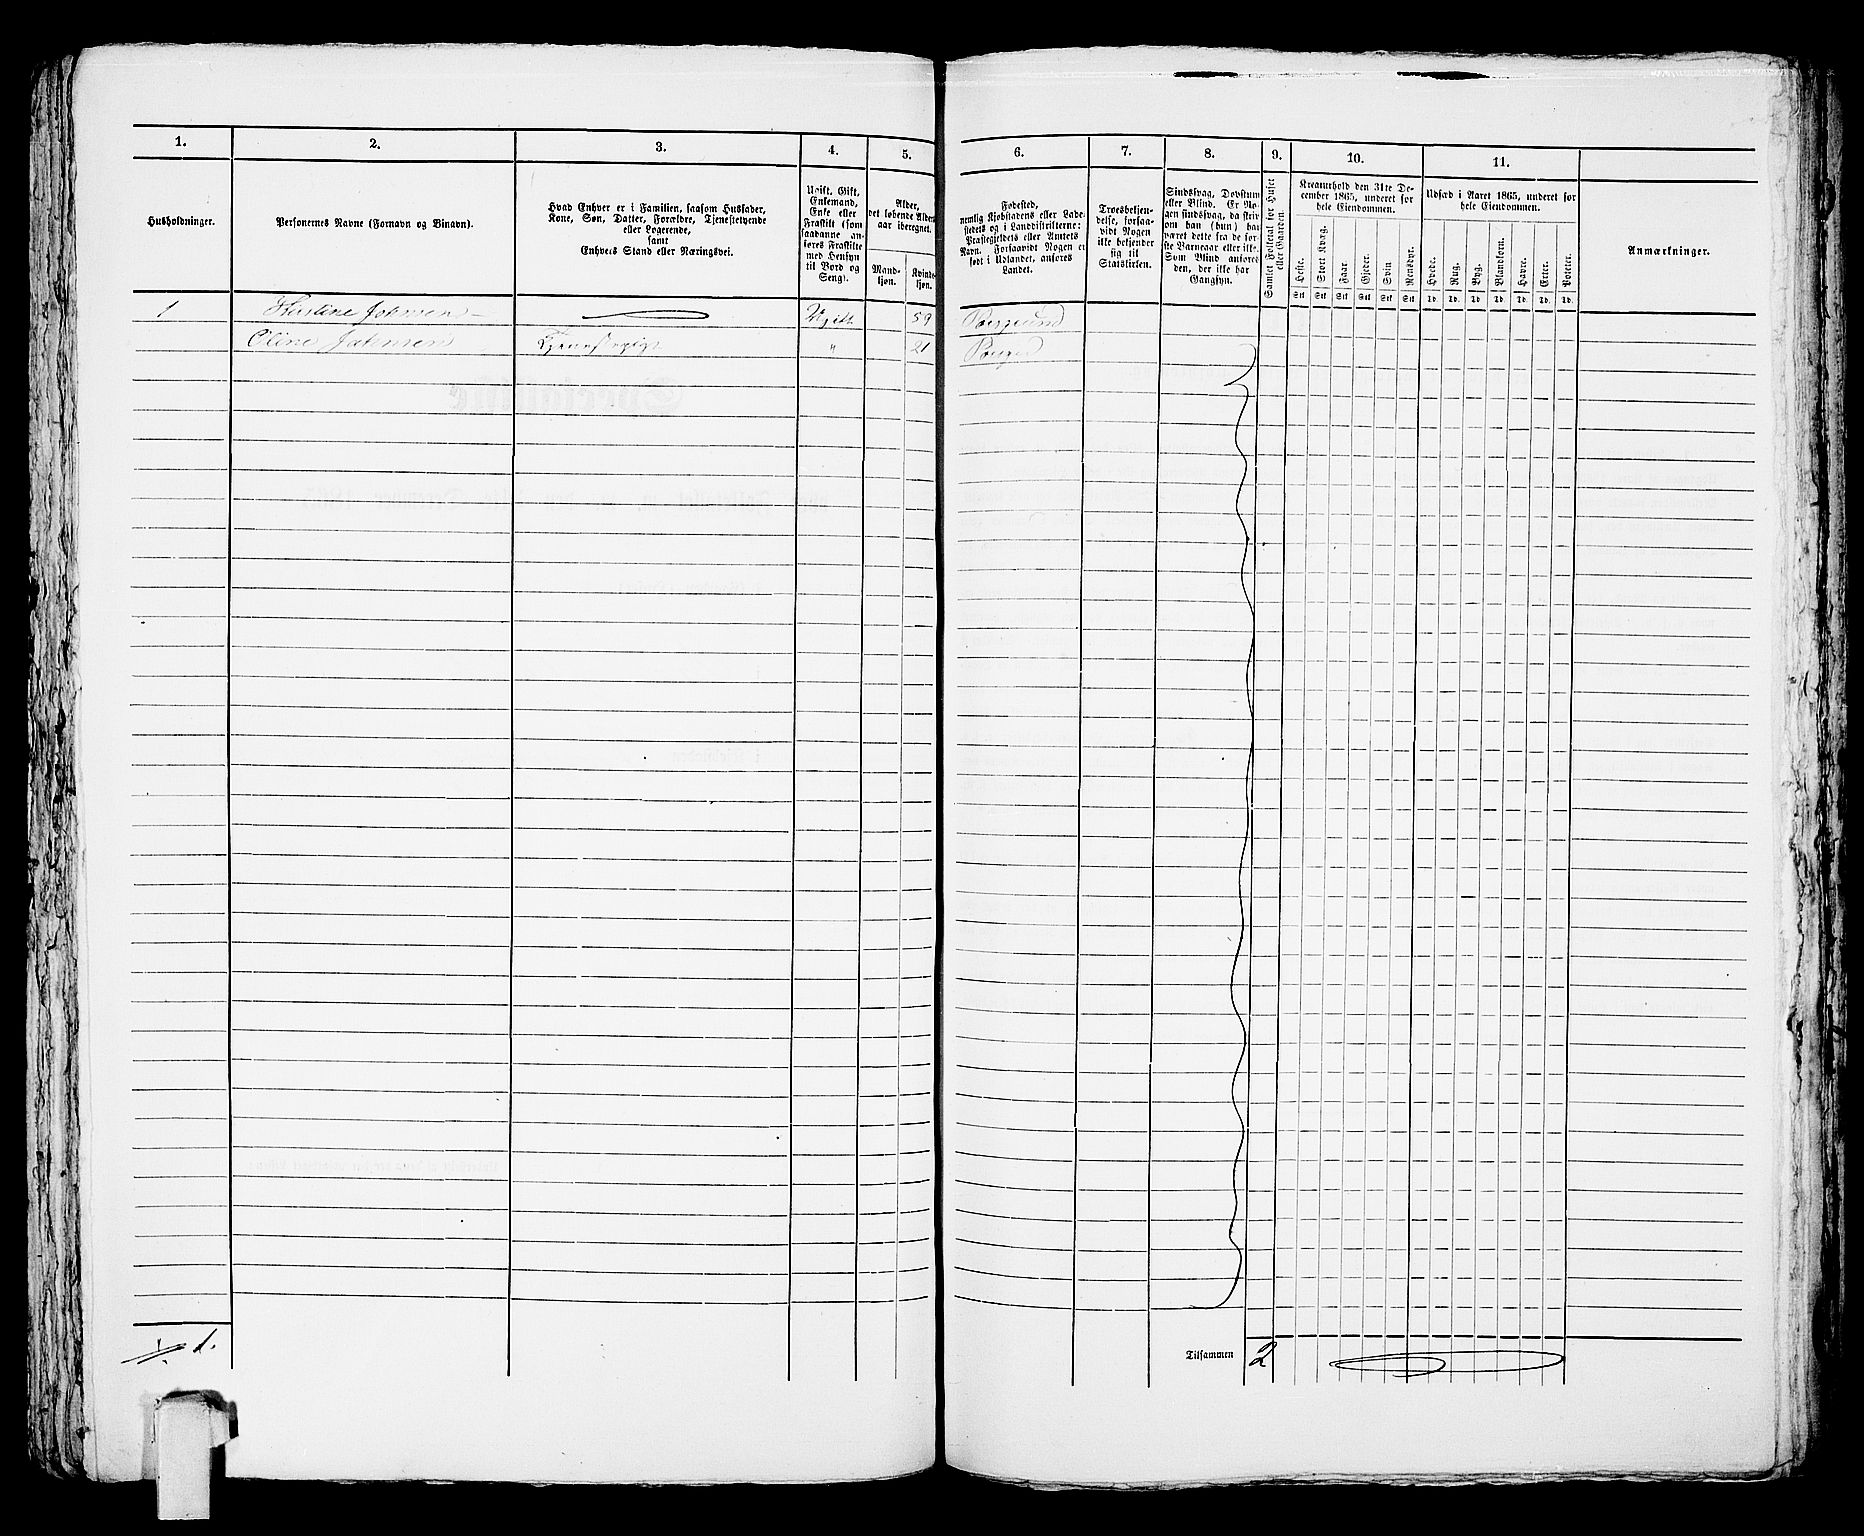 1. 2. 3. 4. 5. 6. 7. 8. 9. 10. 11.
Husholdninger.
Personernes Navne (Fornavn og Binavn).
Hvad Enhver er i Familien, saasom Husfader,
Kone, Søn, Datter, Forældre, Tjenestetyende
eller Logerende,
samt
Enhvers Stand eller Næringsvei.
Ugift, Gift,
Enkemand,
Enke eller
Fraskilt (som
saadanne an-
føres Fraskilte
med Hensyn
til Bord og
Seng).
Alder,
det løbende Alders-
aar iberegnet.
Mand-
kjøn.
Kvinde-
kjøn.
Fødested,
nemlig Kjøbstadens eller Lade-
stedets og i Landdistrikterne:
Præstegjeldets eller Amtets
Navn. Forsaavidt Nogen er
født i Udlandet, anføres
Landet.
Troesbekjen-
delse, forsaa-
vidt Nogen
ikke bekjender
sig til
Statskirken.
Sindssvag, Døvstum
eller Blind. Er No-
gen sindssvag, da skriv
om han (hun) har
været dette fra de før-
ste Barneaar eller ikke.
Som Blind anføres
den, der ikke har
Gangsyn.
Samlet Folketal for Huset
eller Gaarden.
Kreaturhold den 31te De-
cember 1865, underet for
hele Eiendommen.
Heste. Stort Kvæg. Faar. Gjeder. Svin Rensdyr.
Stk Stk Stk Stk Stk Stk
Udsæd i Aaret 1865, underet for
hele Eiendommen.
Hvede. Rug. Byg. Blandkorn. Havre. Erter. Poteter.
Td. Td. Td. Td. Td. Td. Td.
Anmærkninger.
1 Johnsen Ugift 59 Porsgrund
Oline Johnsen " 21
1.
Tilsammen 2